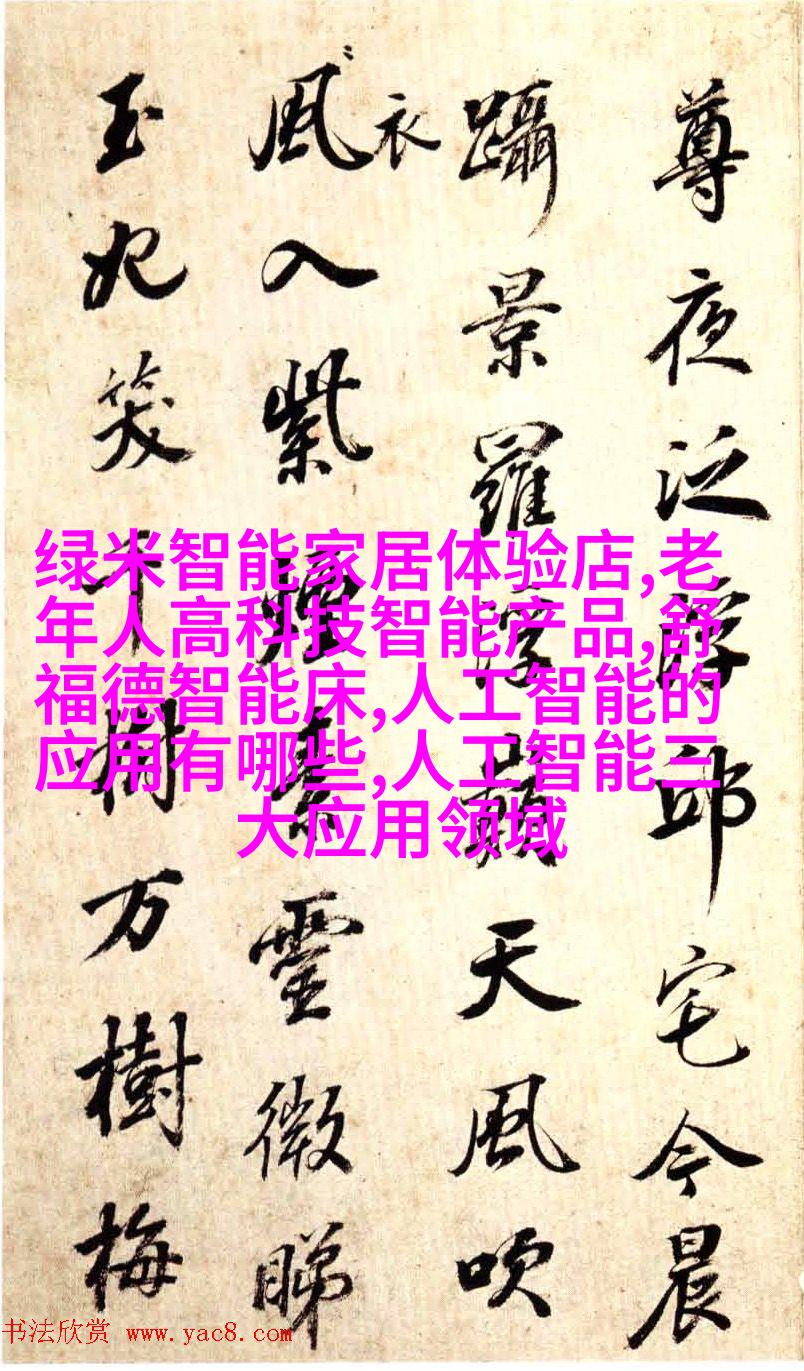 尊夜泛浮邱宅今晨
躡景羅浮巔天風吹
衣
風入紫煙素靈微睇
玉妃笑千樹万樹梅
绿米智能家居体验店,老
年人高科技智能产品,舒
福德智能床,人工智能的
应用有哪些,人工智能三
大应用领域
书法欣赏 www.yac8.com